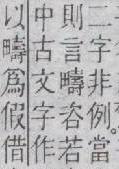 二字非例。當
則言疇咨若
中古文字作
以疇爲假借